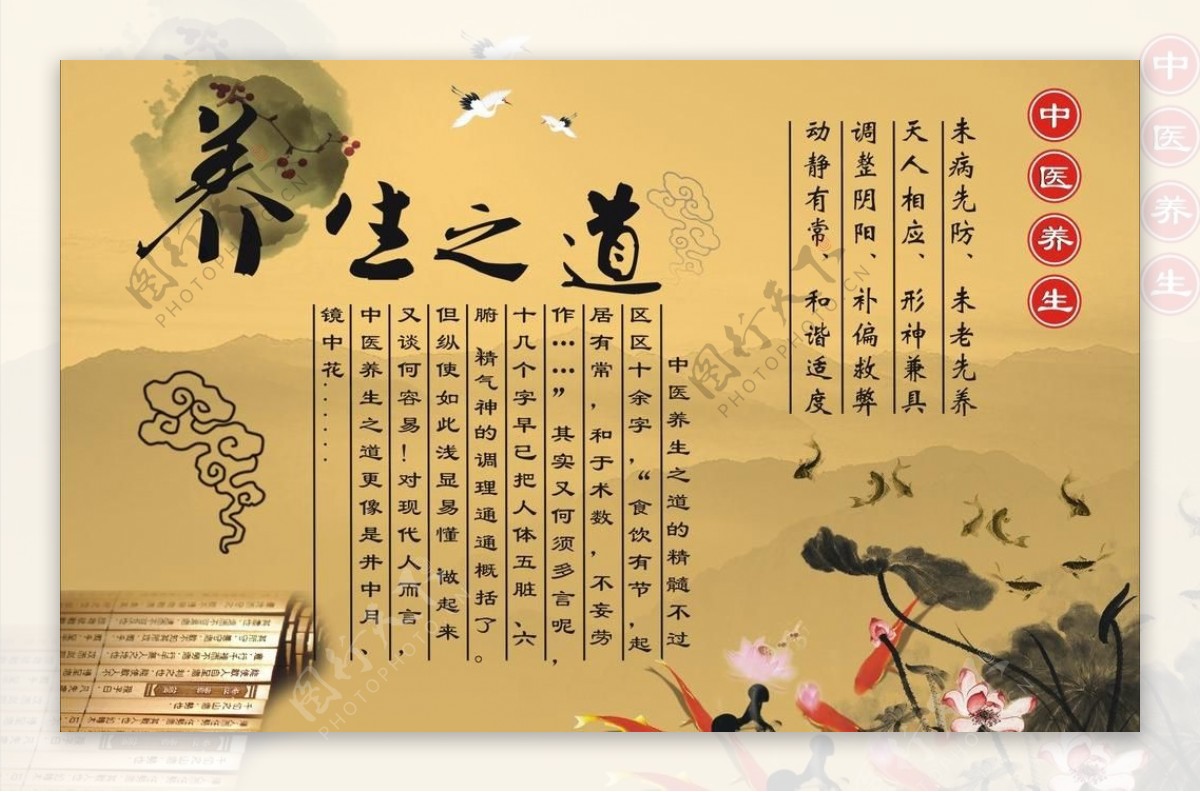 养生之道
中医养生
未病先防、未老先养
天人相应、形神兼具
调整阴阳、补偏救弊
动静有常、和谐适度
中医养生之道的精髓不过
区区十余字，“食饮有节，起
居有常，和于术数，不妄劳
作……”其实又何须多言呢，
十几个字早已把人体五脏、六
腑、精气神的调理通通概括了。
但纵使如此浅显易懂 做起来
又谈何容易！对现代人而言，
中医养生之道更像是井中月、
镜中花......
中医养生
图行天下
PHOTOPHOTO.CN